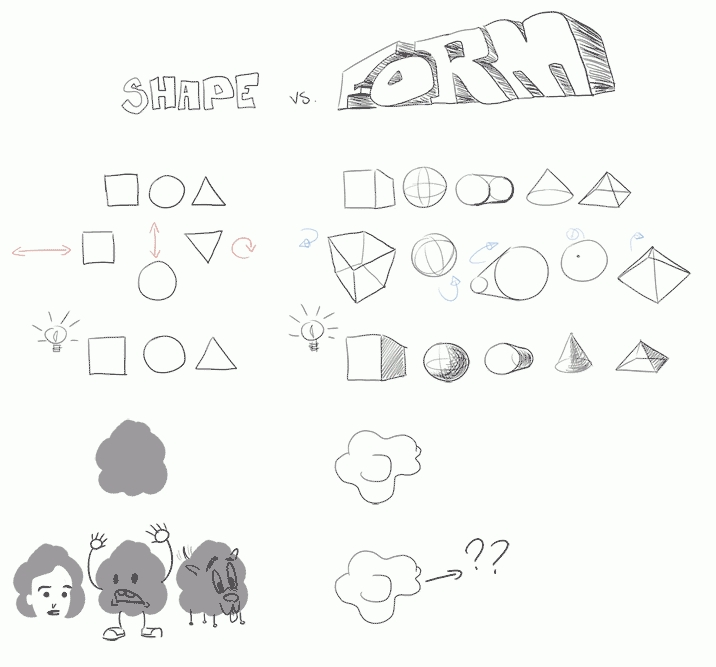 SHAPE vs. FORM
??